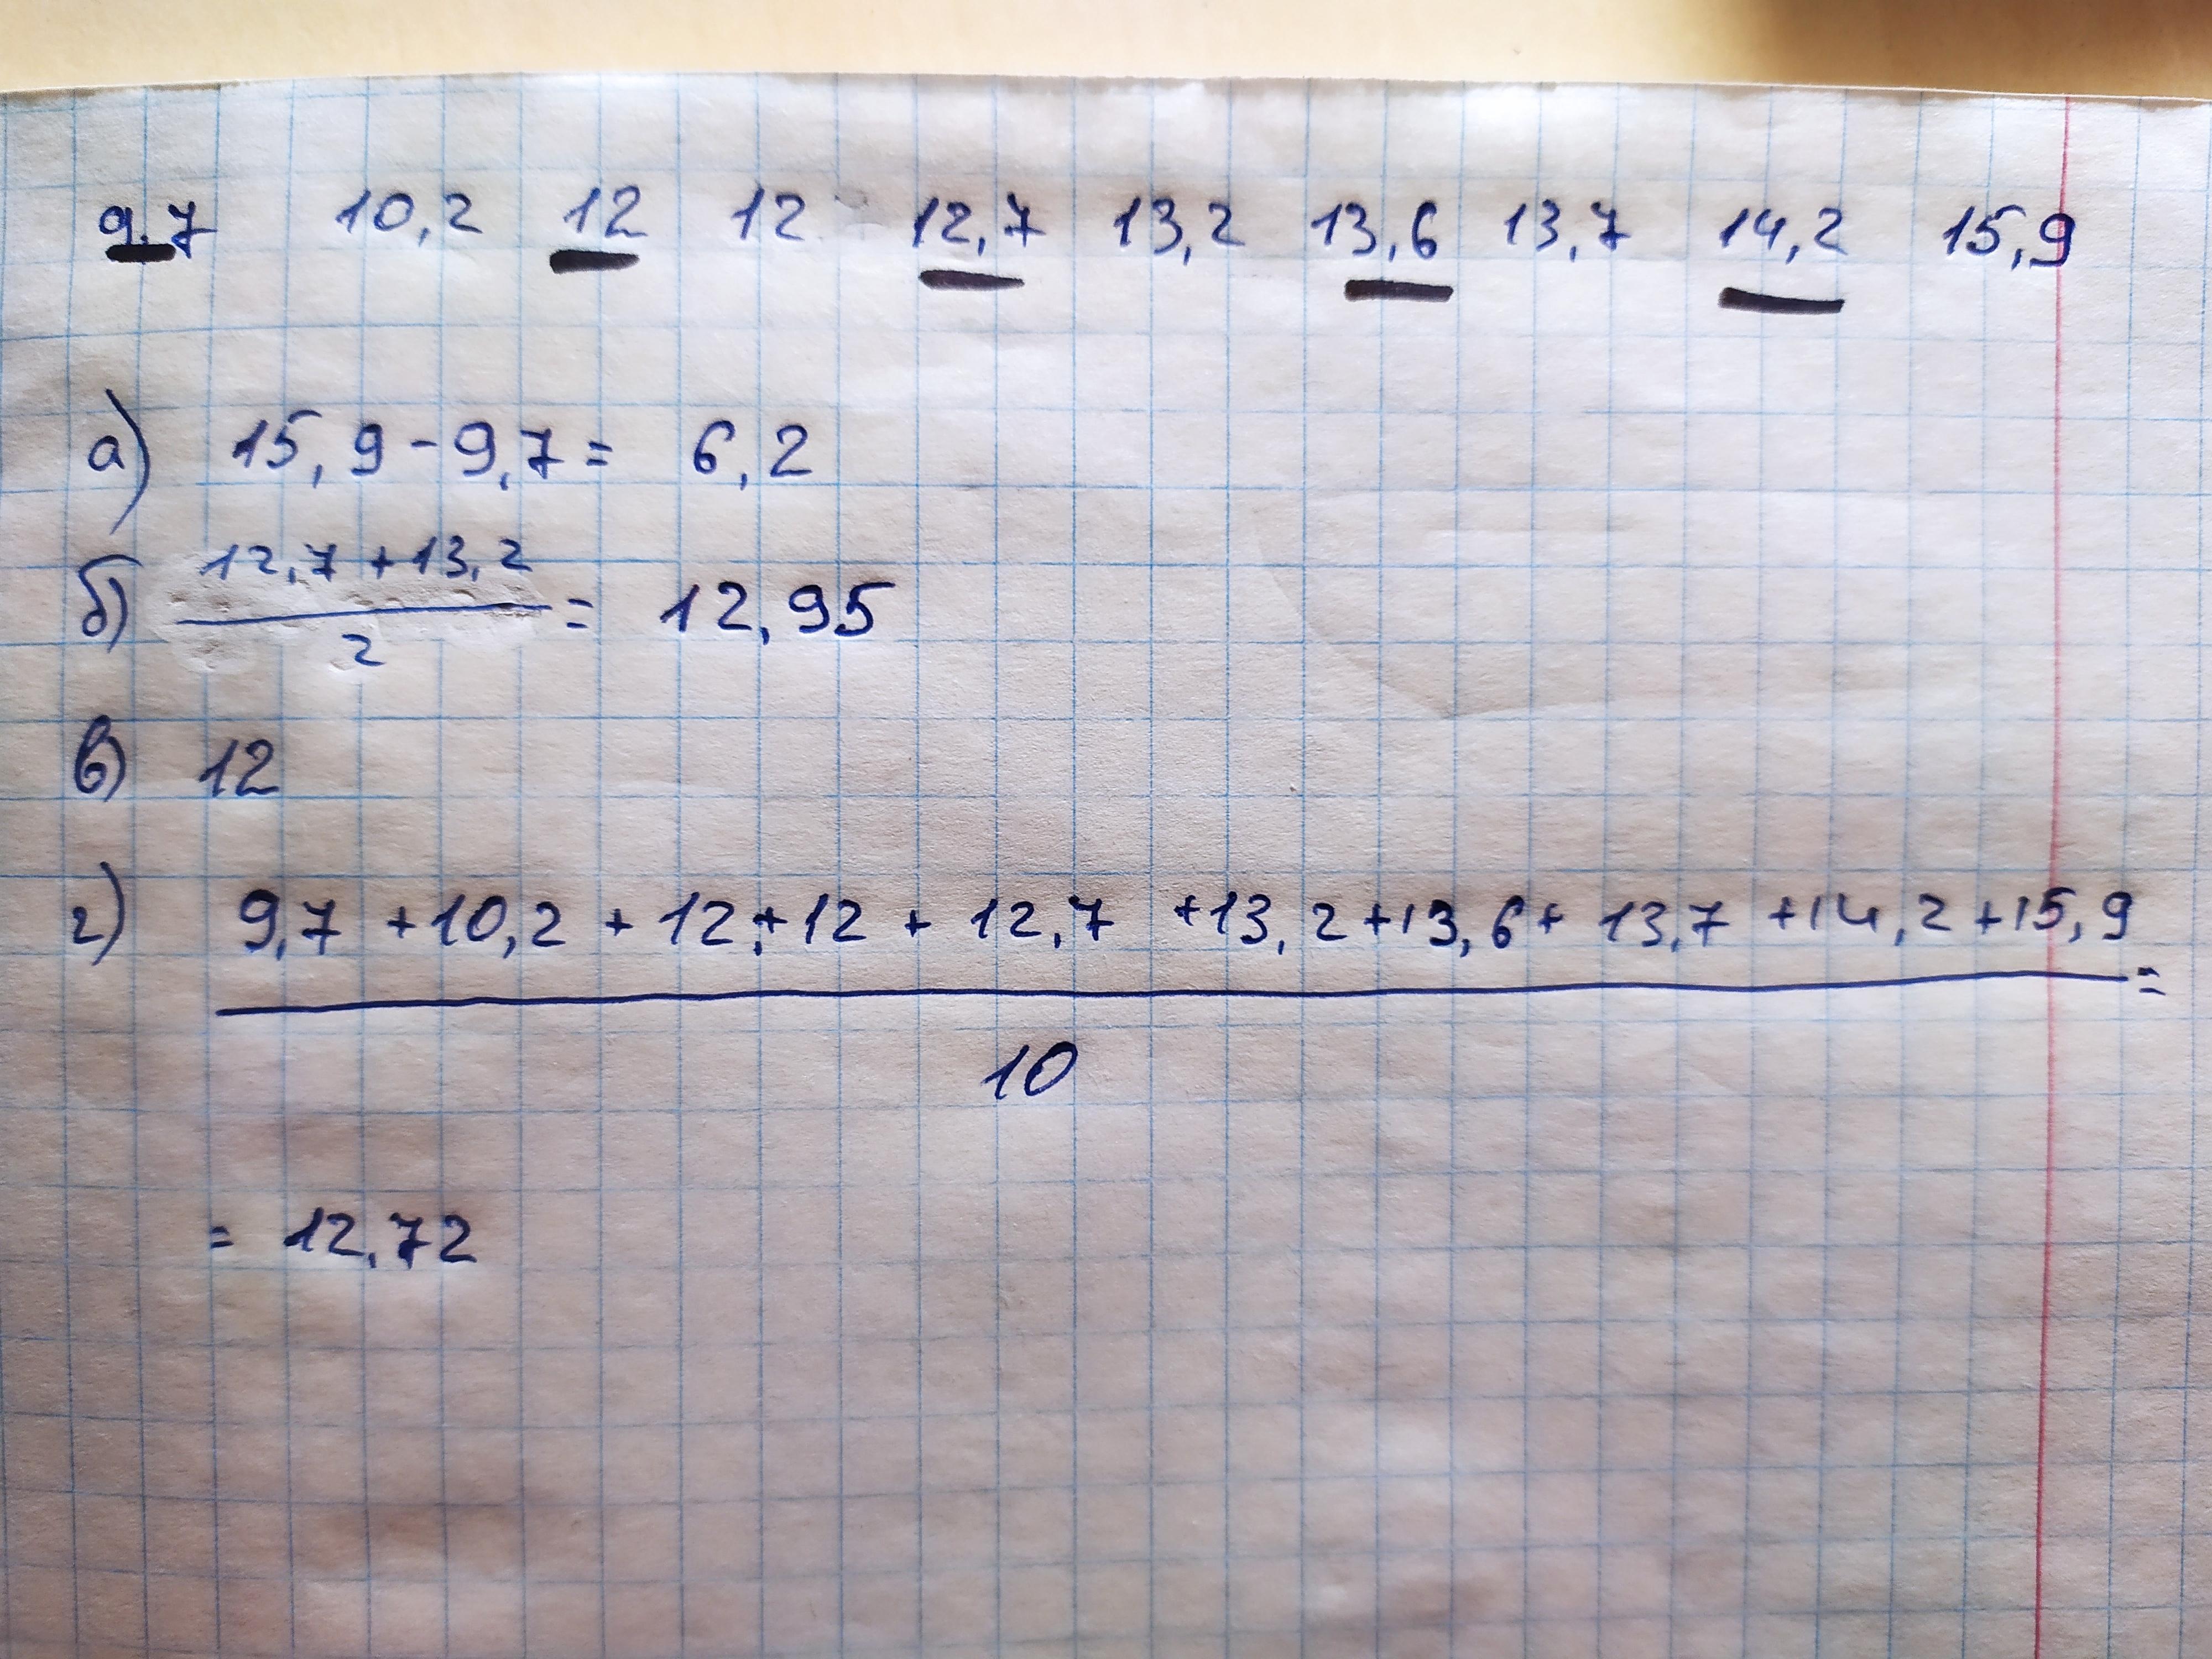 9,7 10,2 12 12 12,7 13,2 13,6 13,7 14,2 15,9
а) 15,9-9,7= 6,2
б) 12,7+13,2
= 12,95
2
в) 12
г) 9,7 +10,2 + 12+12 + 12,7 +13,2+13,6+ 13,7 +14,2+15,9
=
10
= 12,72